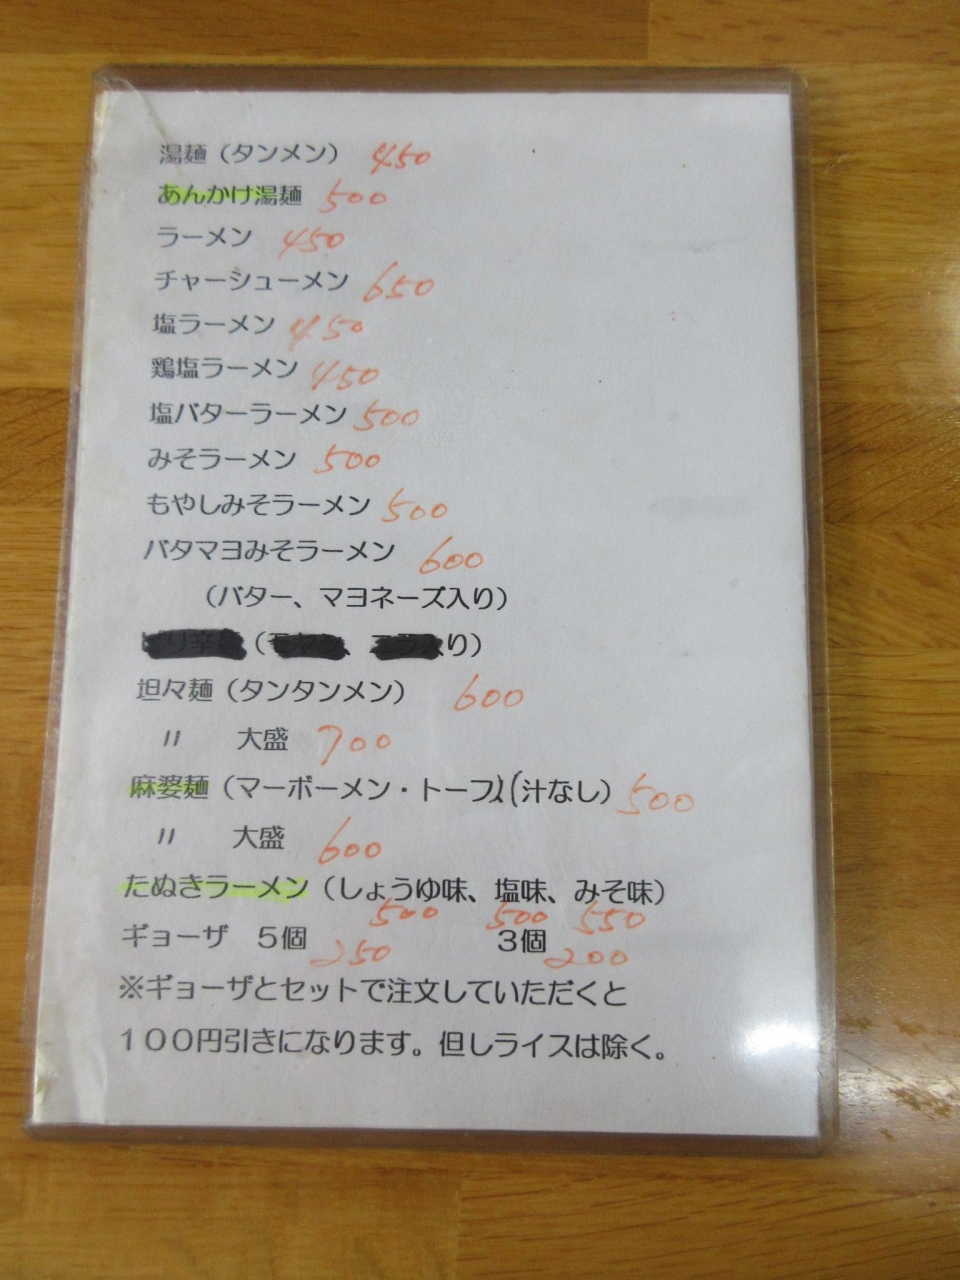 湯麺（タンメン） 450
あんかけ湯麺 500
ラーメン 450
チャーシューメン 650
塩ラーメン 450
鶏塩ラーメン 450
塩バターラーメン 500
みそラーメン 500
もやしみそラーメン 500
バタマヨみそラーメン 600
（バター、マヨネーズ入り）
（ り）
坦々麺（タンタンメン） 600
〃 大盛 700
麻婆麺（マーボーメン・トーフ入(汁なし） 500
〃 大盛 600
たぬきラーメン（しょうゆ味、塩味、みそ味）
500 500 550
ギョーザ ５個 250 ３個 200
※ギョーザとセットで注文していただくと
１００円引きになります。但しライスは除く。